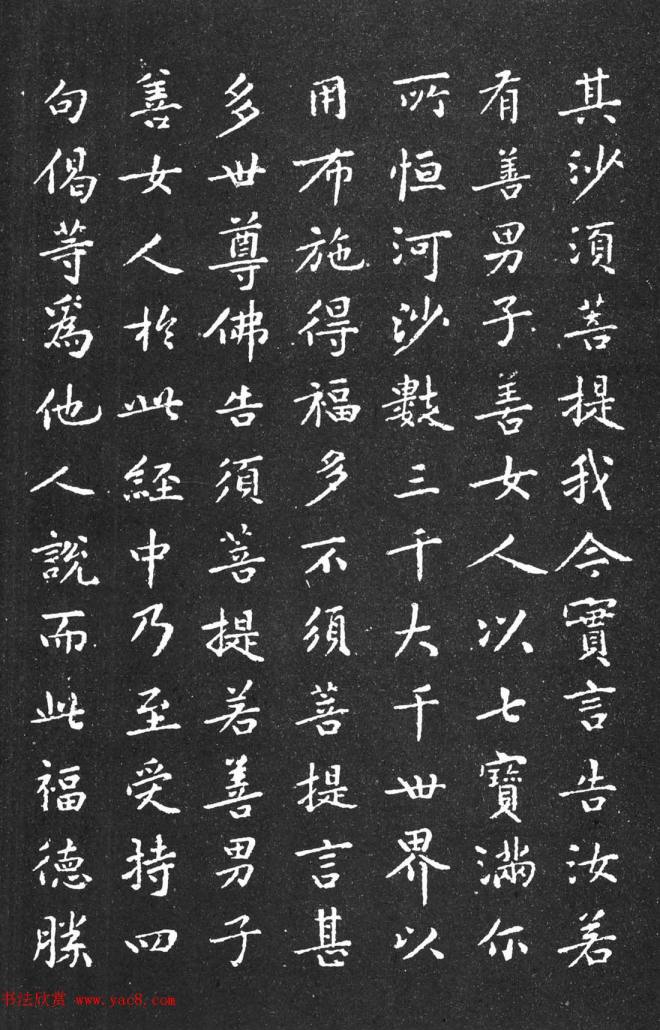 其沙須菩提我今實言告汝若
有善男子善女人以七寶滿尔
所恒河沙數三千大千世界以
用布施得福多不須菩提言甚
多世尊佛告須菩提若善男子
善女人於此經中乃至受持四
句偈等爲他人說而此福德勝
书法欣赏 www.yac8.com